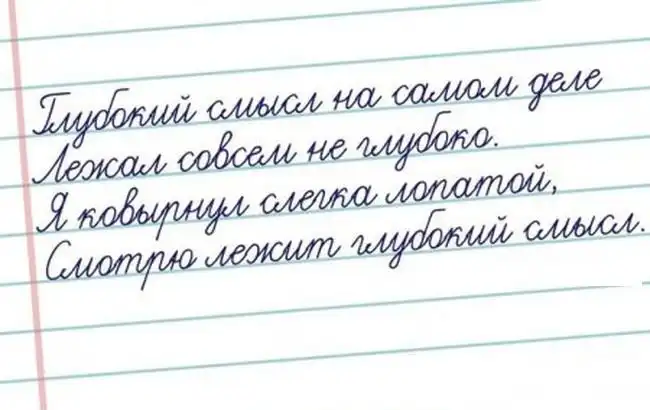 Глубокий смысл на самом деле
Лежал совсем не глубоко.
Я ковырнул слегка лопатой,
Смотрю лежит глубокий смысл.